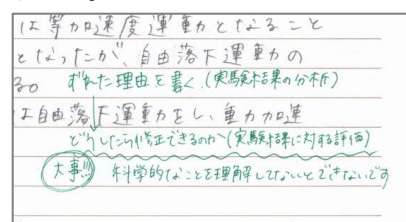 は等加速度運動となること
となったが、自由落下運動の
る。 ずれた理由を書く(実験結果の分析)
は自由落下運動をし、重力加速
どうしたら修正できるのか(実験結果に対する評価)
大事!!! 科学的なことを理解してないとできないです